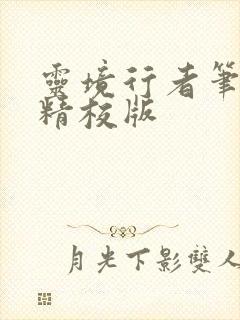 靈境行者筆
精校版
月光下影雙人